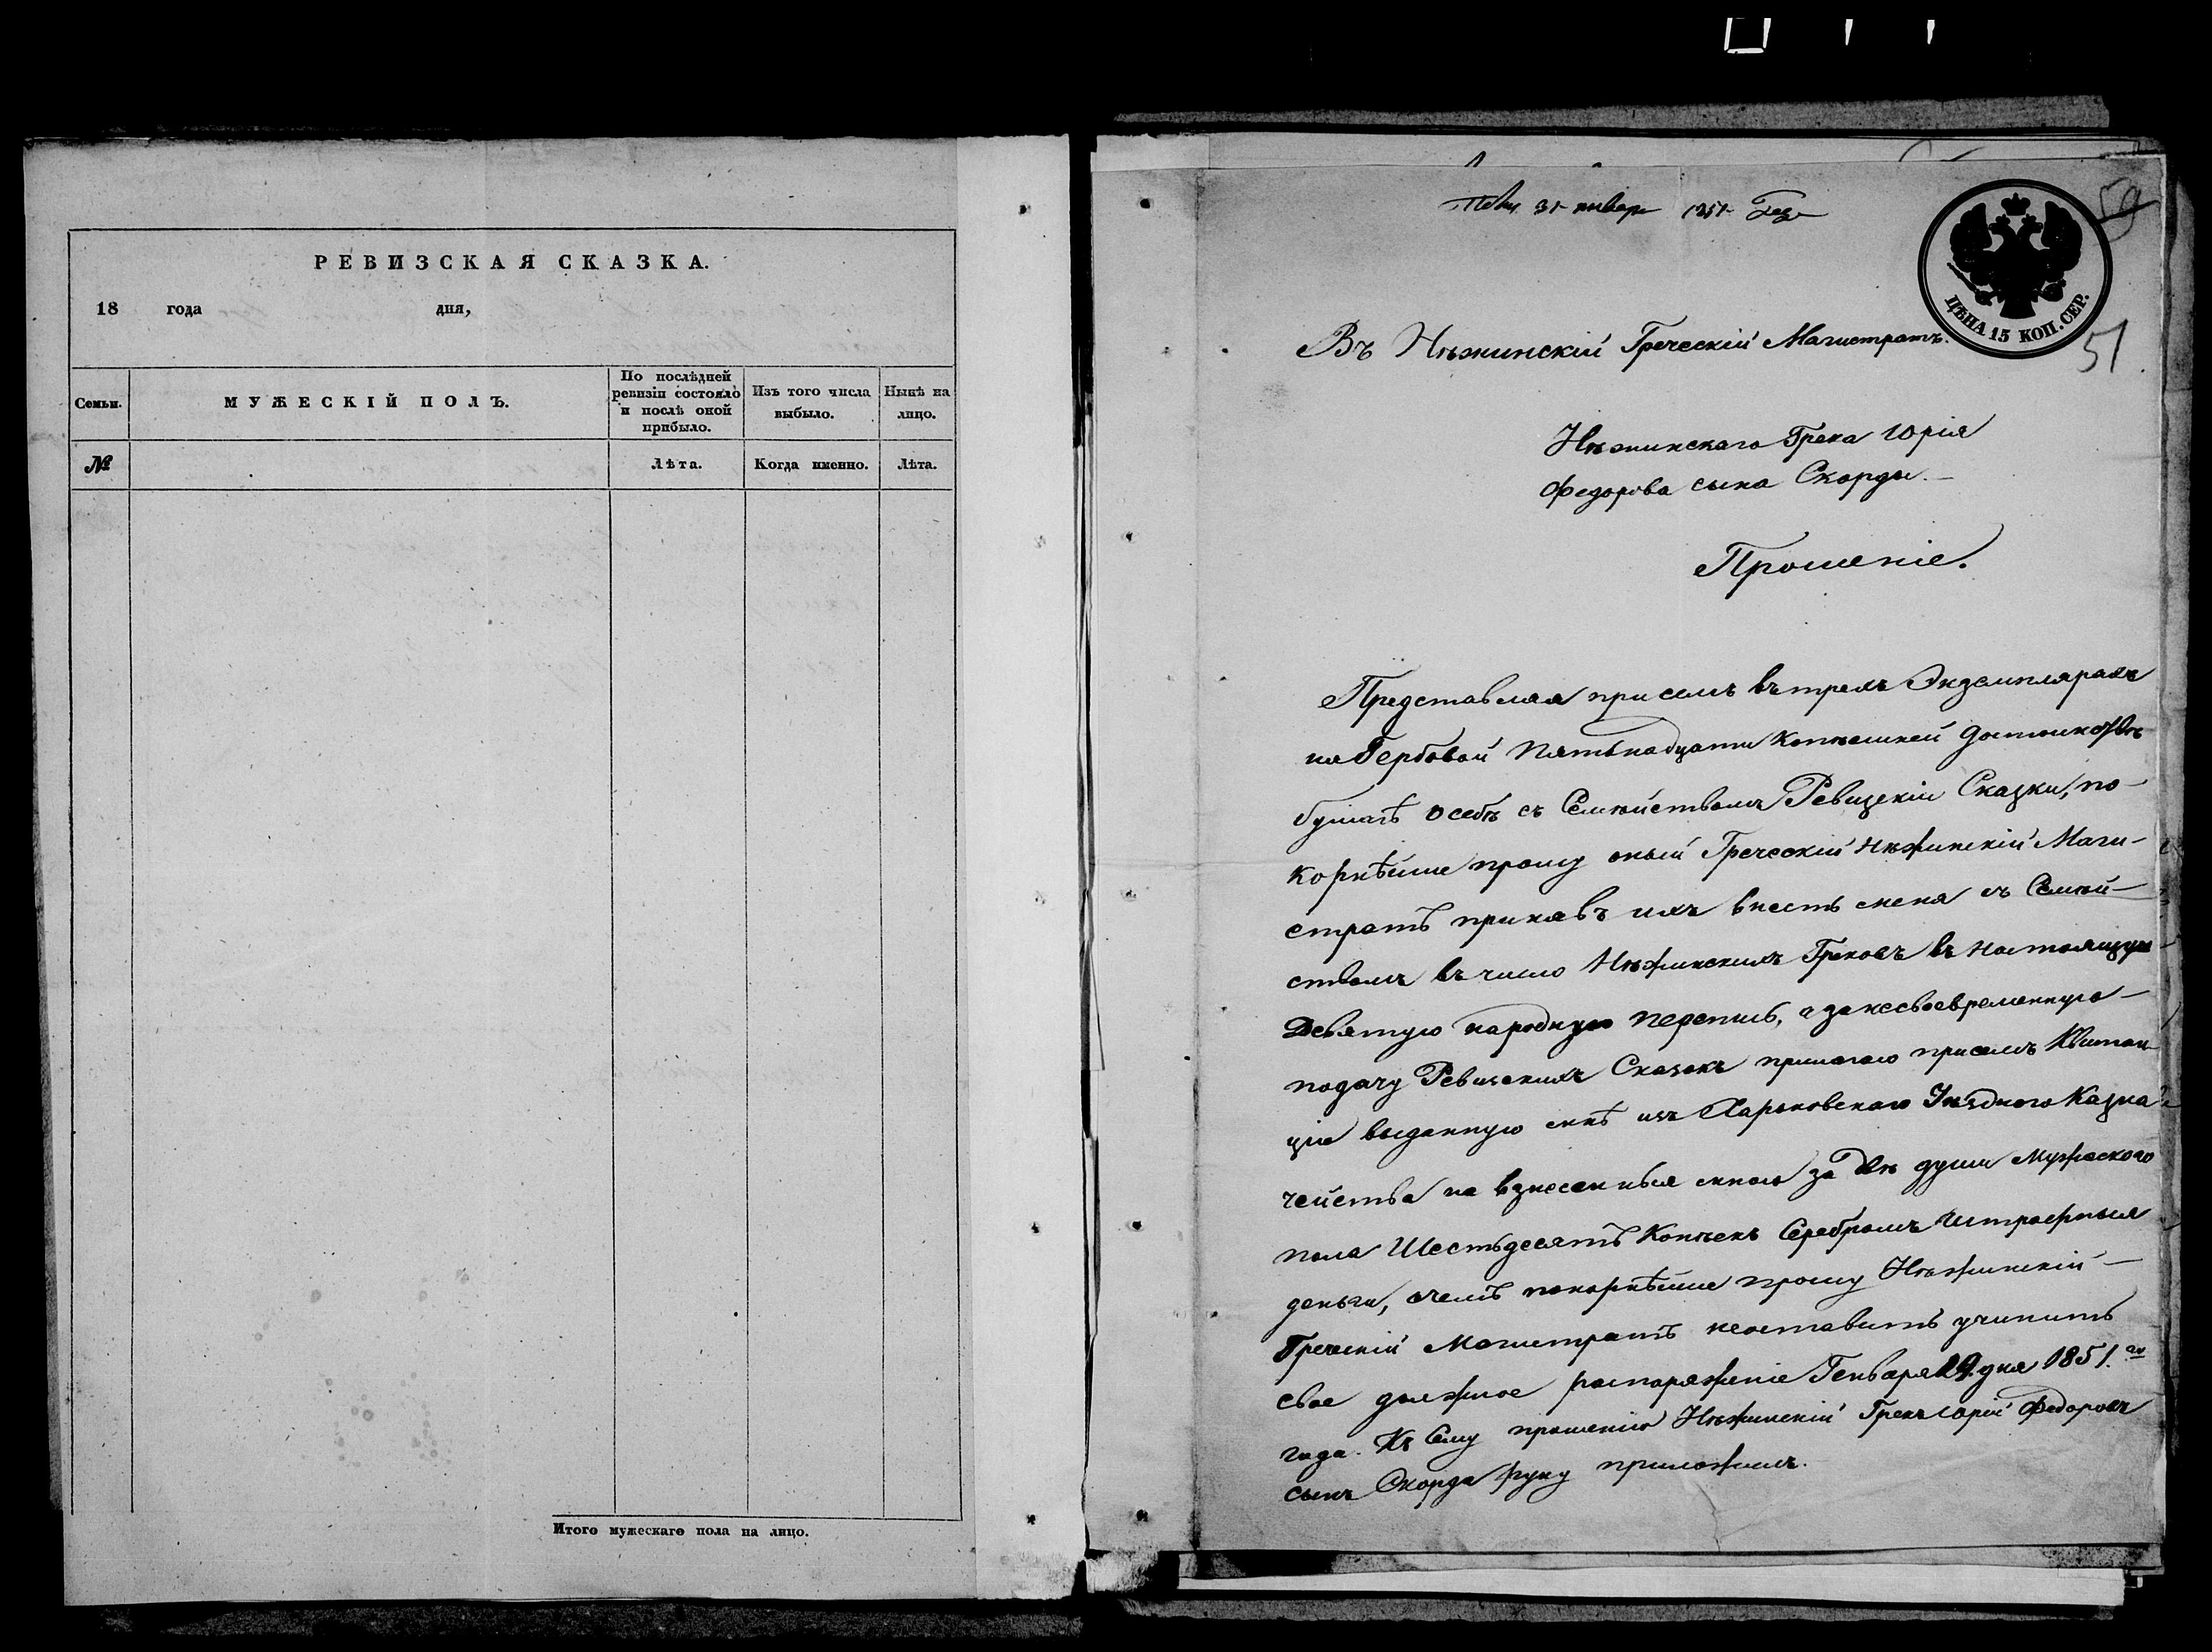 РЕВИЗСКАЯ СКАЗКА.
18 года дня,
Семьи.
МУЖЕСКІЙ ПОЛЪ.
По послѣдней
ревизіи состояло
и послѣ оной
прибыло.
Изъ того числа
выбыло.
Нынѣ на
лицо.
№
Лѣта.
Когда именно.
Лѣта.
Итого мужескаго пола на лицо.
31 январ 1851 года
59
ЦѢНА 15 КОП. СЕР.
51
Въ Нѣжинскій Греческій Магистратъ.
Нѣжинскаго Грека Юрія
Федорова сына Скорды.
Прошеніе.
Представляя при семъ въ трехъ Экземплярахъ
на Гербовой Пятьнадцати Копѣешней достоинствѣ
бумагѣ о себѣ съ Семѣйствомъ Ревизскіи Сказки, по-
корнѣйше прошу оный Греческій Нѣжинскій Маги-
стратъ принявъ ихъ внесть меня съ Семѣй-
ствомъ въ число Нѣжинскихъ Грековъ въ настоящую
Девятую народную перепись, а за несвоевременную
подачу Ревизскихъ Сказокъ прилагаю при семъ Квитан-
цію выданную мнѣ изъ Харьковскаго Уѣзднаго Казна-
чейства на взнесенныя мною за двѣ души Мужескаго
пола Шестьдесятъ Копѣекъ Серебромъ Штрафныя
деньги, очемъ покорнѣйше прошу Нѣжинскій
Греческій Магистратъ неоставить учинить
свое должное распоряженіе Генваря 29 дня 1851.го
года. Къ Сему прошенію Нѣжинскій Грекъ Юрій Федоровъ
сынъ Скорда руку приложилъ.